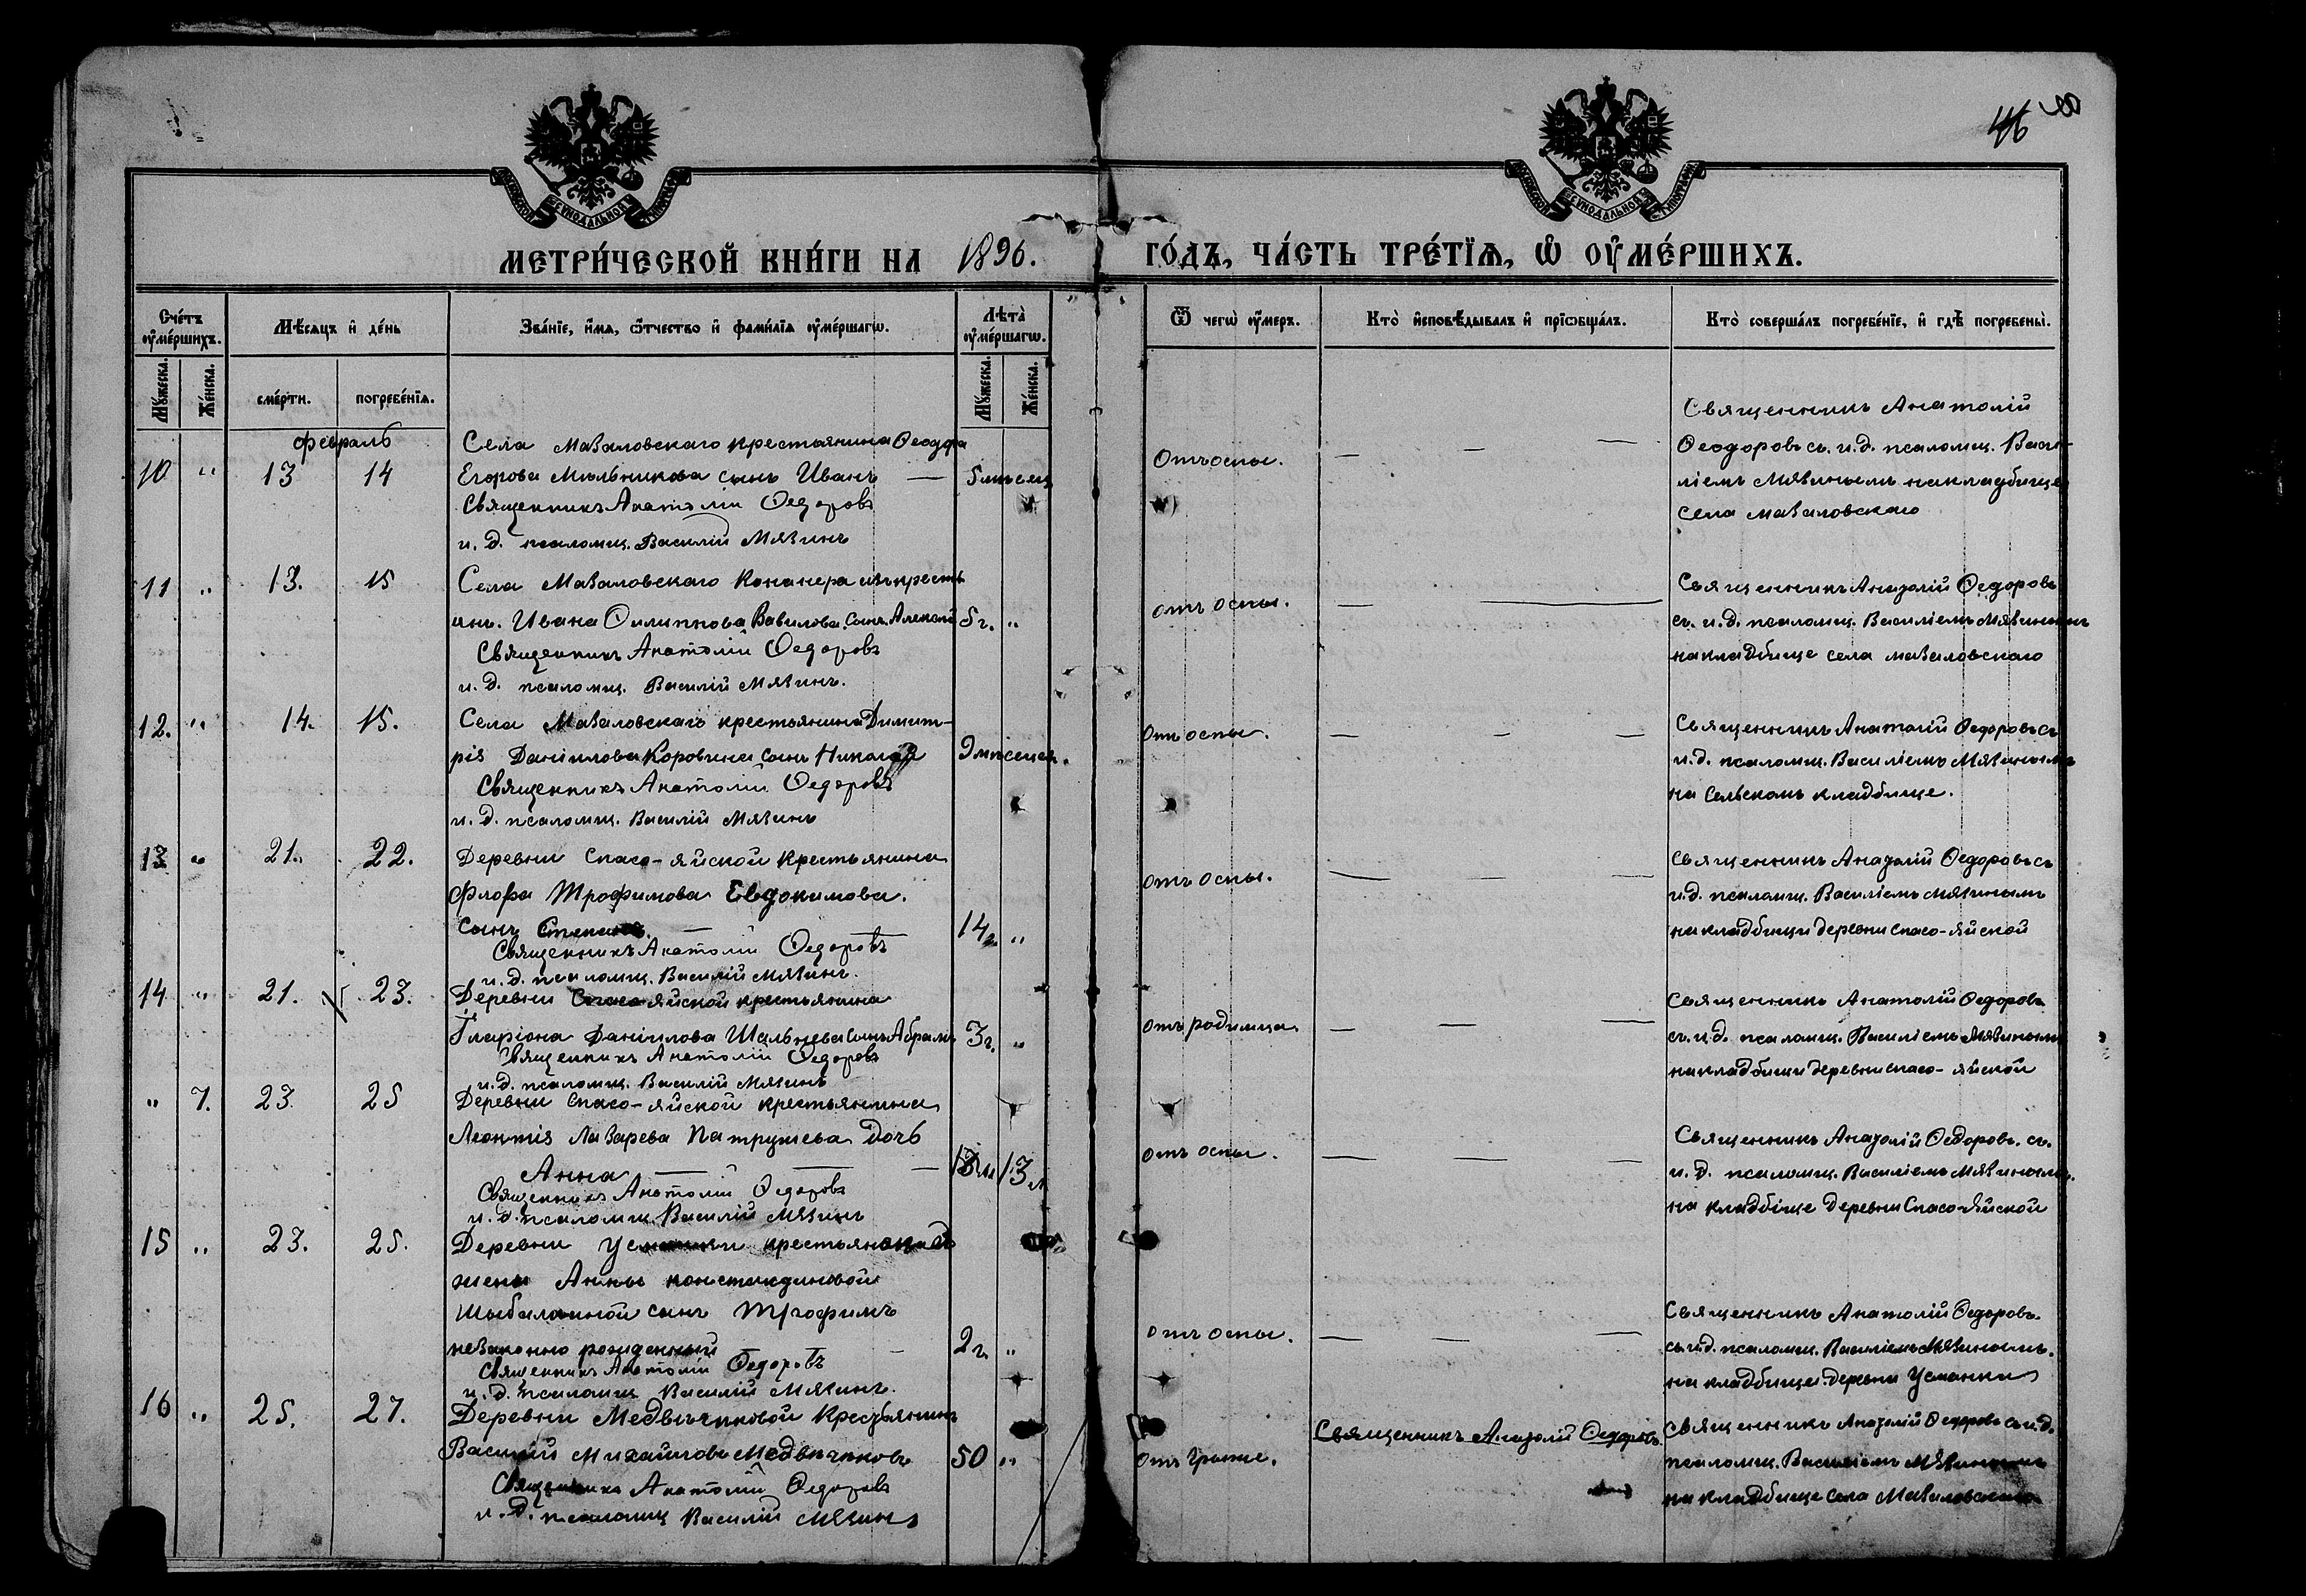 46
МЕТРИ́ЧЕСКОЙ КНИ́ГИ НА 1896. ГО́ДЪ, ЧА́СТЬ ТРЕ́ТІѦ, Ѡ҆ ОУ҆МЕ́РШИХЪ.
Сче́тъ оу҆ме́ршихъ.
Мѣ́сѧцъ и҆ де́нь
Зва́нїе, и҆́мѧ, ѻ҆́тчество и҆ фами́лїѧ оу҆ме́ршагѡ.
Лѣта̀ оу҆ме́ршагѡ.
Ѿ чегѡ̀ оу҆́меръ.
Кто̀ и҆сповѣ́дывалъ и҆ прїѡбща́лъ.
Кто̀ соверша́лъ погребе́нїе, и҆ гдѣ̀ погребены̀.
Мꙋ́жеска.
Же́нска.
сме́рти.
погребе́нїѧ.
Мꙋ́жеска.
Же́нска.
Февраль
10 " 13 14
Села Мазаловскаго крестьянина Ѳеодора
Егорова Мѣльникова сынъ Иванъ — 5 мѣсяц
Священникъ Анатолій Ѳедоровъ
и. д. псаломщ. Василій Мязинъ
Отъ оспы. — — —
Священникъ Анатолій
Ѳеодоровъ съ и.д. псаломщ. Васи-
ліемъ Мязинымъ на кладбище
села Мазаловскаго
11 " 13. 15
Села Мазаловскаго изъ кресть
ян. Ивана Филиппова Вавилова сынъ Алексій 5 г. "
Священникъ Анатолій Ѳедоровъ
и. д. псаломщ. Василій Мязинъ.
отъ оспы. — —
Священникъ Анатолій Ѳедоровъ
съ и.д. псаломщ. Василіемъ Мязинымъ
на кладбище села Мазаловскаго
12. " 14. 15.
Села Мазаловскаго крестьянина Димит-
рія Даніилова Коровина сынъ Николай 9 мѣсецев.
Священникъ Анатолій Ѳедоровъ
и. д. псаломщ. Василій Мязинъ
Отъ оспы. — — —
Священникъ Анатолій Ѳедоровъ съ
и.д. псаломщ. Василіемъ Мязинымъ
на сельскомъ кладбище.
13 " 21. 22.
Деревни Спасо-Яйской крестьянина
Флора Трофимова Евдокимова.
сынъ Степанъ. — — 14 г. "
Священникъ Анатолій Ѳедоровъ
и. д. псаломщ. Василій Мязинъ.
отъ оспы. — — —
Священникъ Анатолій Ѳедоровъ съ
и.д. псаломщ. Василіемъ Мязинымъ
на кладбищи деревни Спасо-Яйской
14 " 21. 23.
Деревни Спасо Яйской крестьянина
Иларіона Даніилова сынъ Абрамъ 3 г. "
Священникъ Анатолій Ѳедоровъ
и. д. псаломщ. Василій Мязинъ
отъ родимца. — — —
Священникъ Анатолій Ѳедоровъ
съ и.д. псаломщ. Василіемъ Мязинымъ
на кладбищи деревни Спасо-Яйской
" 7. 23. 25
Деревни Спасо-Яйской крестьянина
Леонтія Лазарева Патрушева дочь
Анна — — — 13 л
Священникъ Анатолій Ѳедоровъ
и. д. псаломщ. Василій Мязинъ
отъ оспы. — — —
Священникъ Анатолій Ѳедоровъ. съ.
и. д. псаломщ. Василіемъ Мязинымъ.
на кладбище деревни Спасо-Яйской
15 " 23. 25.
Деревни Усманки
жены Анны Констандиновой
сынъ Трофимъ
незаконно рожденный — 2 г. "
Священникъ Анатолій Ѳедоровъ
и. д. псаломщ. Василій Мязинъ.
отъ оспы. — — —
Священникъ Анатолій Ѳедоровъ.
съ и.д. псаломщ. Василіемъ Мязинымъ.
на кладбище деревни Усманки
16 " 25. 27.
Деревни Медвѣчиковой крестьянинъ
Василій Михайловъ Медвѣчиковъ 50 "
Священникъ Анатолій Ѳедоровъ
и. д. псаломщ Василій Мязинъ
отъ грыжи.
Священникъ Анатолій Ѳедоровъ
Священникъ Анатолій Ѳедоровъ съ и.д.
псаломщ. Василіемъ Мязинымъ
на кладбище села Мазаловскаго